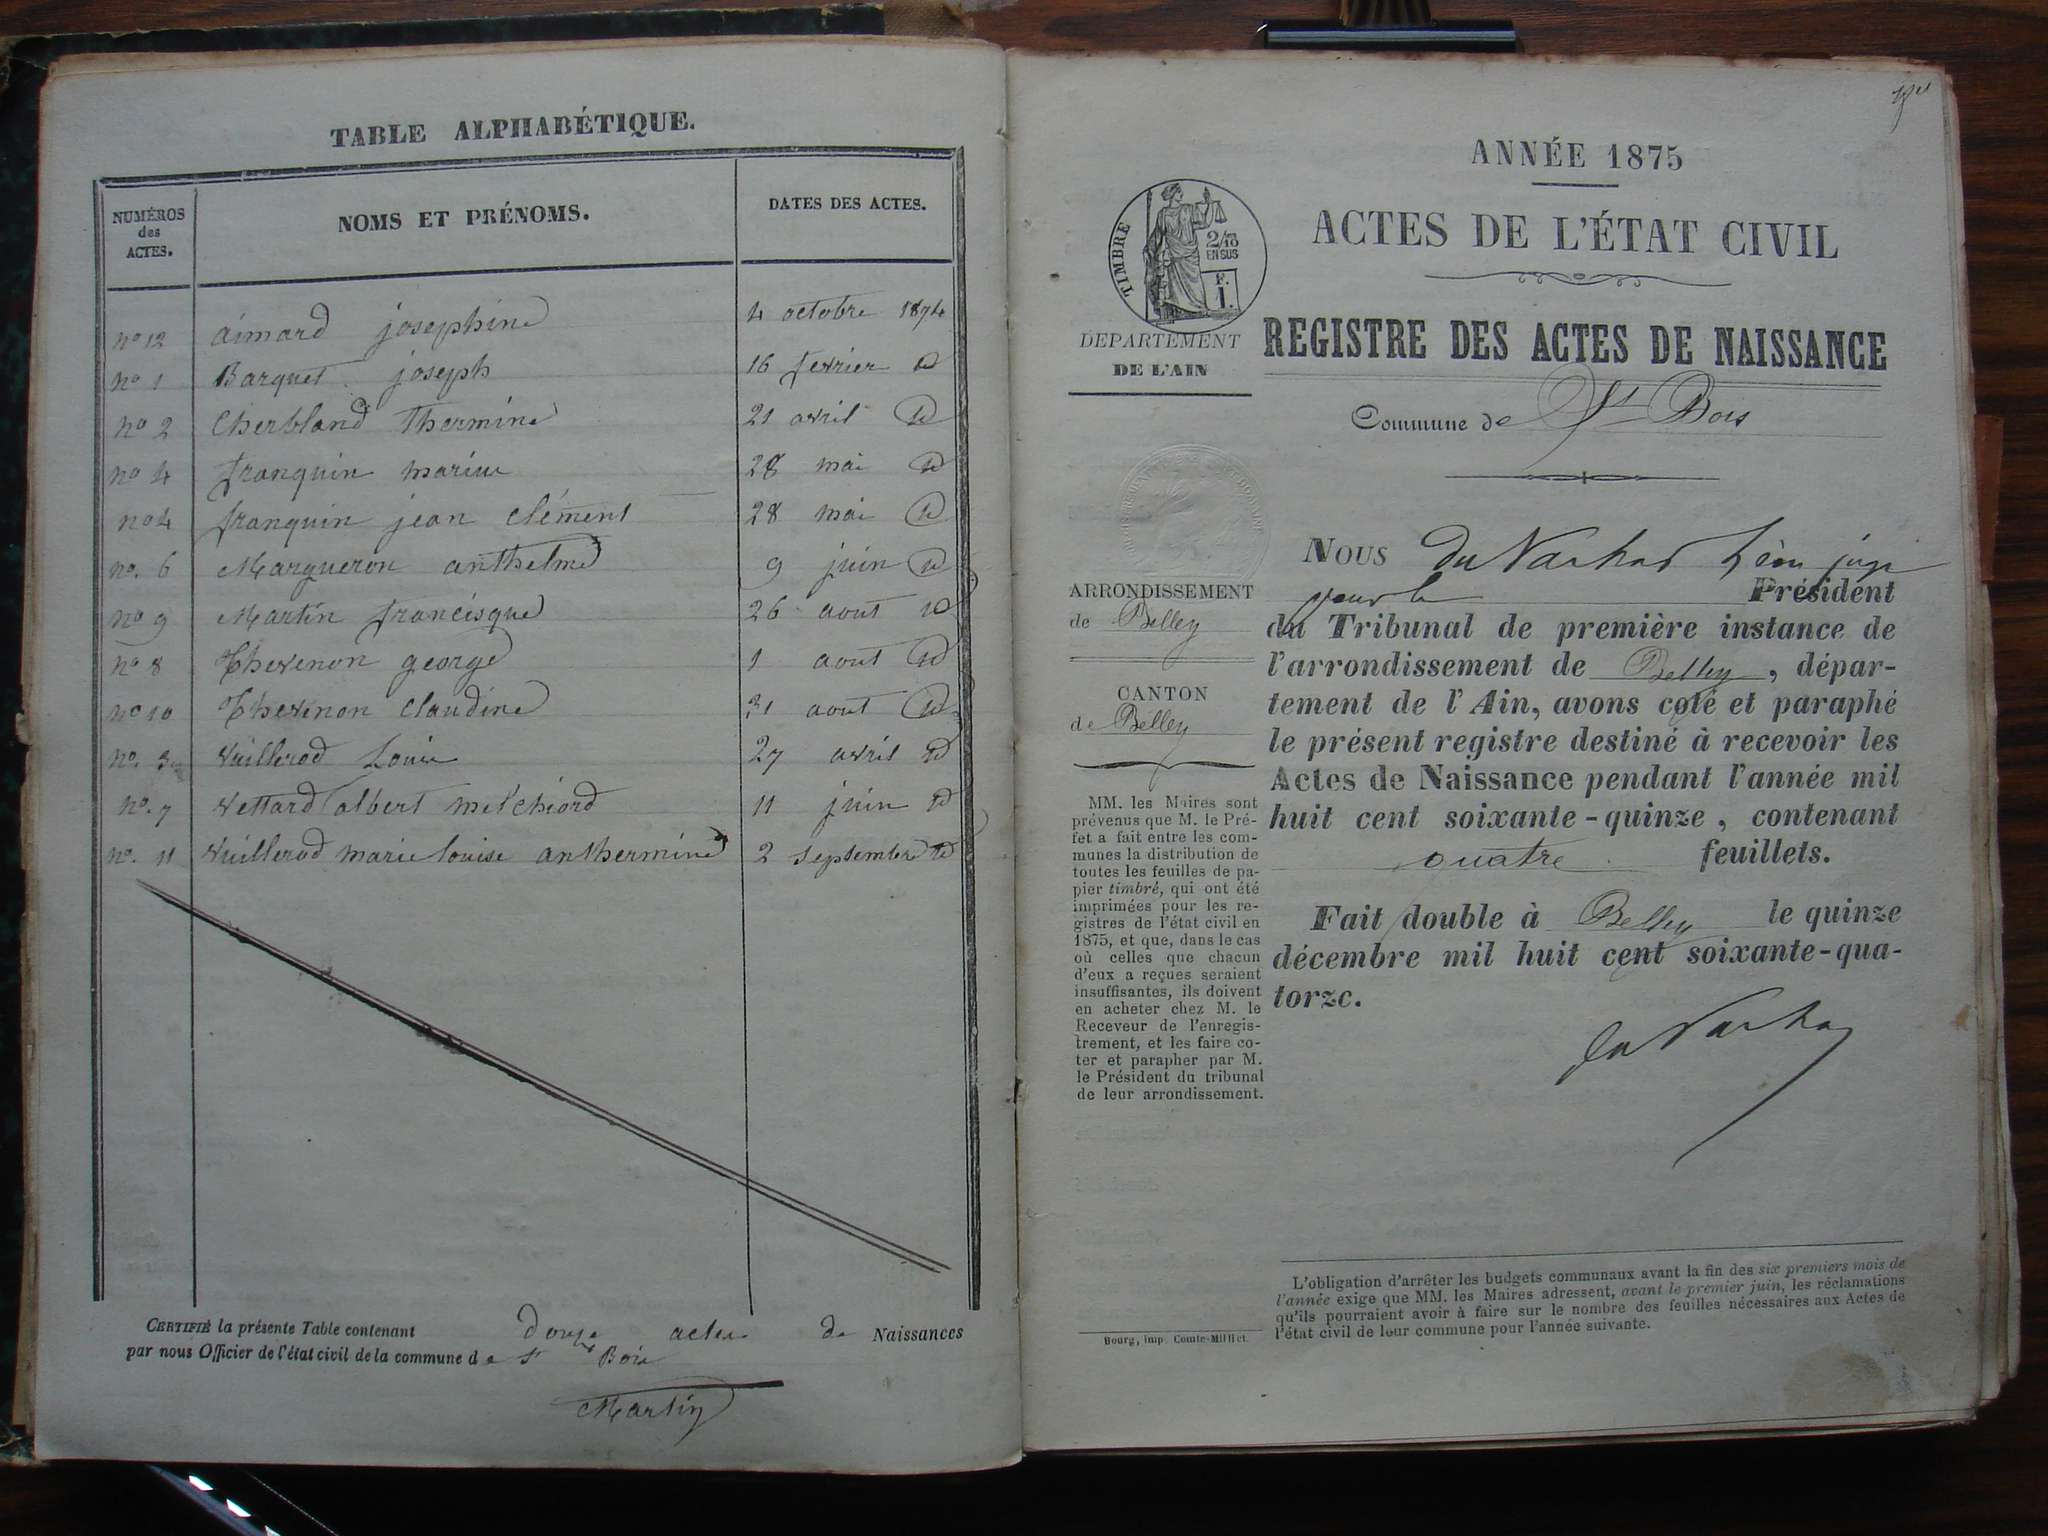 TABLE ALPHABÉTIQUE.
NUMÉROS des ACTES. NOMS ET PRÉNOMS. DATES DES ACTES.
no 12 aimard josephine 4 octobre 1874
no 1 Barquet joseph 16 fevrier id
no 2 Cherbland Thermine 21 avril id
no 4 franquin marius 28 mai id
no 4 franquin jean clément 28 mai id
no. 6 Margueron anthelme 9 juin id
no 9 Martin francisque 26 aout id
no 8 Thevenon george 1 aout id
no 10 Thevenon claudine 31 aout id
no. 3 vuillerod Louis 27 avril id
no. 7 vettard albert melchiord 11 juin id
no. 11 vuillerod marie louise anthermine 2 septembre id
CERTIFIÉ la présente Table contenant douze actes de Naissances
par nous Officier de l'état civil de la commune de St Bois
Martin
ANNÉE 1875
ACTES DE L'ÉTAT CIVIL
TIMBRE
2/10
EN SUS
F.
1.
DÉPARTEMENT
DE L'AIN
REGISTRE DES ACTES DE NAISSANCE
Commune de St Bois
ARRONDISSEMENT
de Belley
CANTON
de Belley
MM. les Maires sont
prévenus que M. le Pré-
fet a fait entre les com-
munes la distribution de
toutes les feuilles de pa-
pier timbré, qui ont été
imprimées pour les re-
gistres de l'état civil en
1875, et que, dans le cas
où celles que chacun
d'eux a reçues seraient
insuffisantes, ils doivent
en acheter chez M. le
Receveur de l'enregis-
trement, et les faire co-
ter et parapher par M.
le Président du tribunal
de leur arrondissement.
NOUS du Léon juge
pour le Président
du Tribunal de première instance de
l'arrondissement de Belley, dépar-
tement de l'Ain, avons coté et paraphé
le présent registre destiné à recevoir les
Actes de Naissance pendant l'année mil
huit cent soixante-quinze, contenant
quatre feuillets.
Fait double à Belley le quinze
décembre mil huit cent soixante-qua-
torze.
L'obligation d'arrêter les budgets communaux avant la fin des six premiers mois de
l'année exige que MM. les Maires adressent, avant le premier juin, les réclamations
qu'ils pourraient avoir à faire sur le nombre des feuilles nécessaires aux Actes de
l'état civil de leur commune pour l'année suivante.
Bourg, imp. Comte-Milliet.